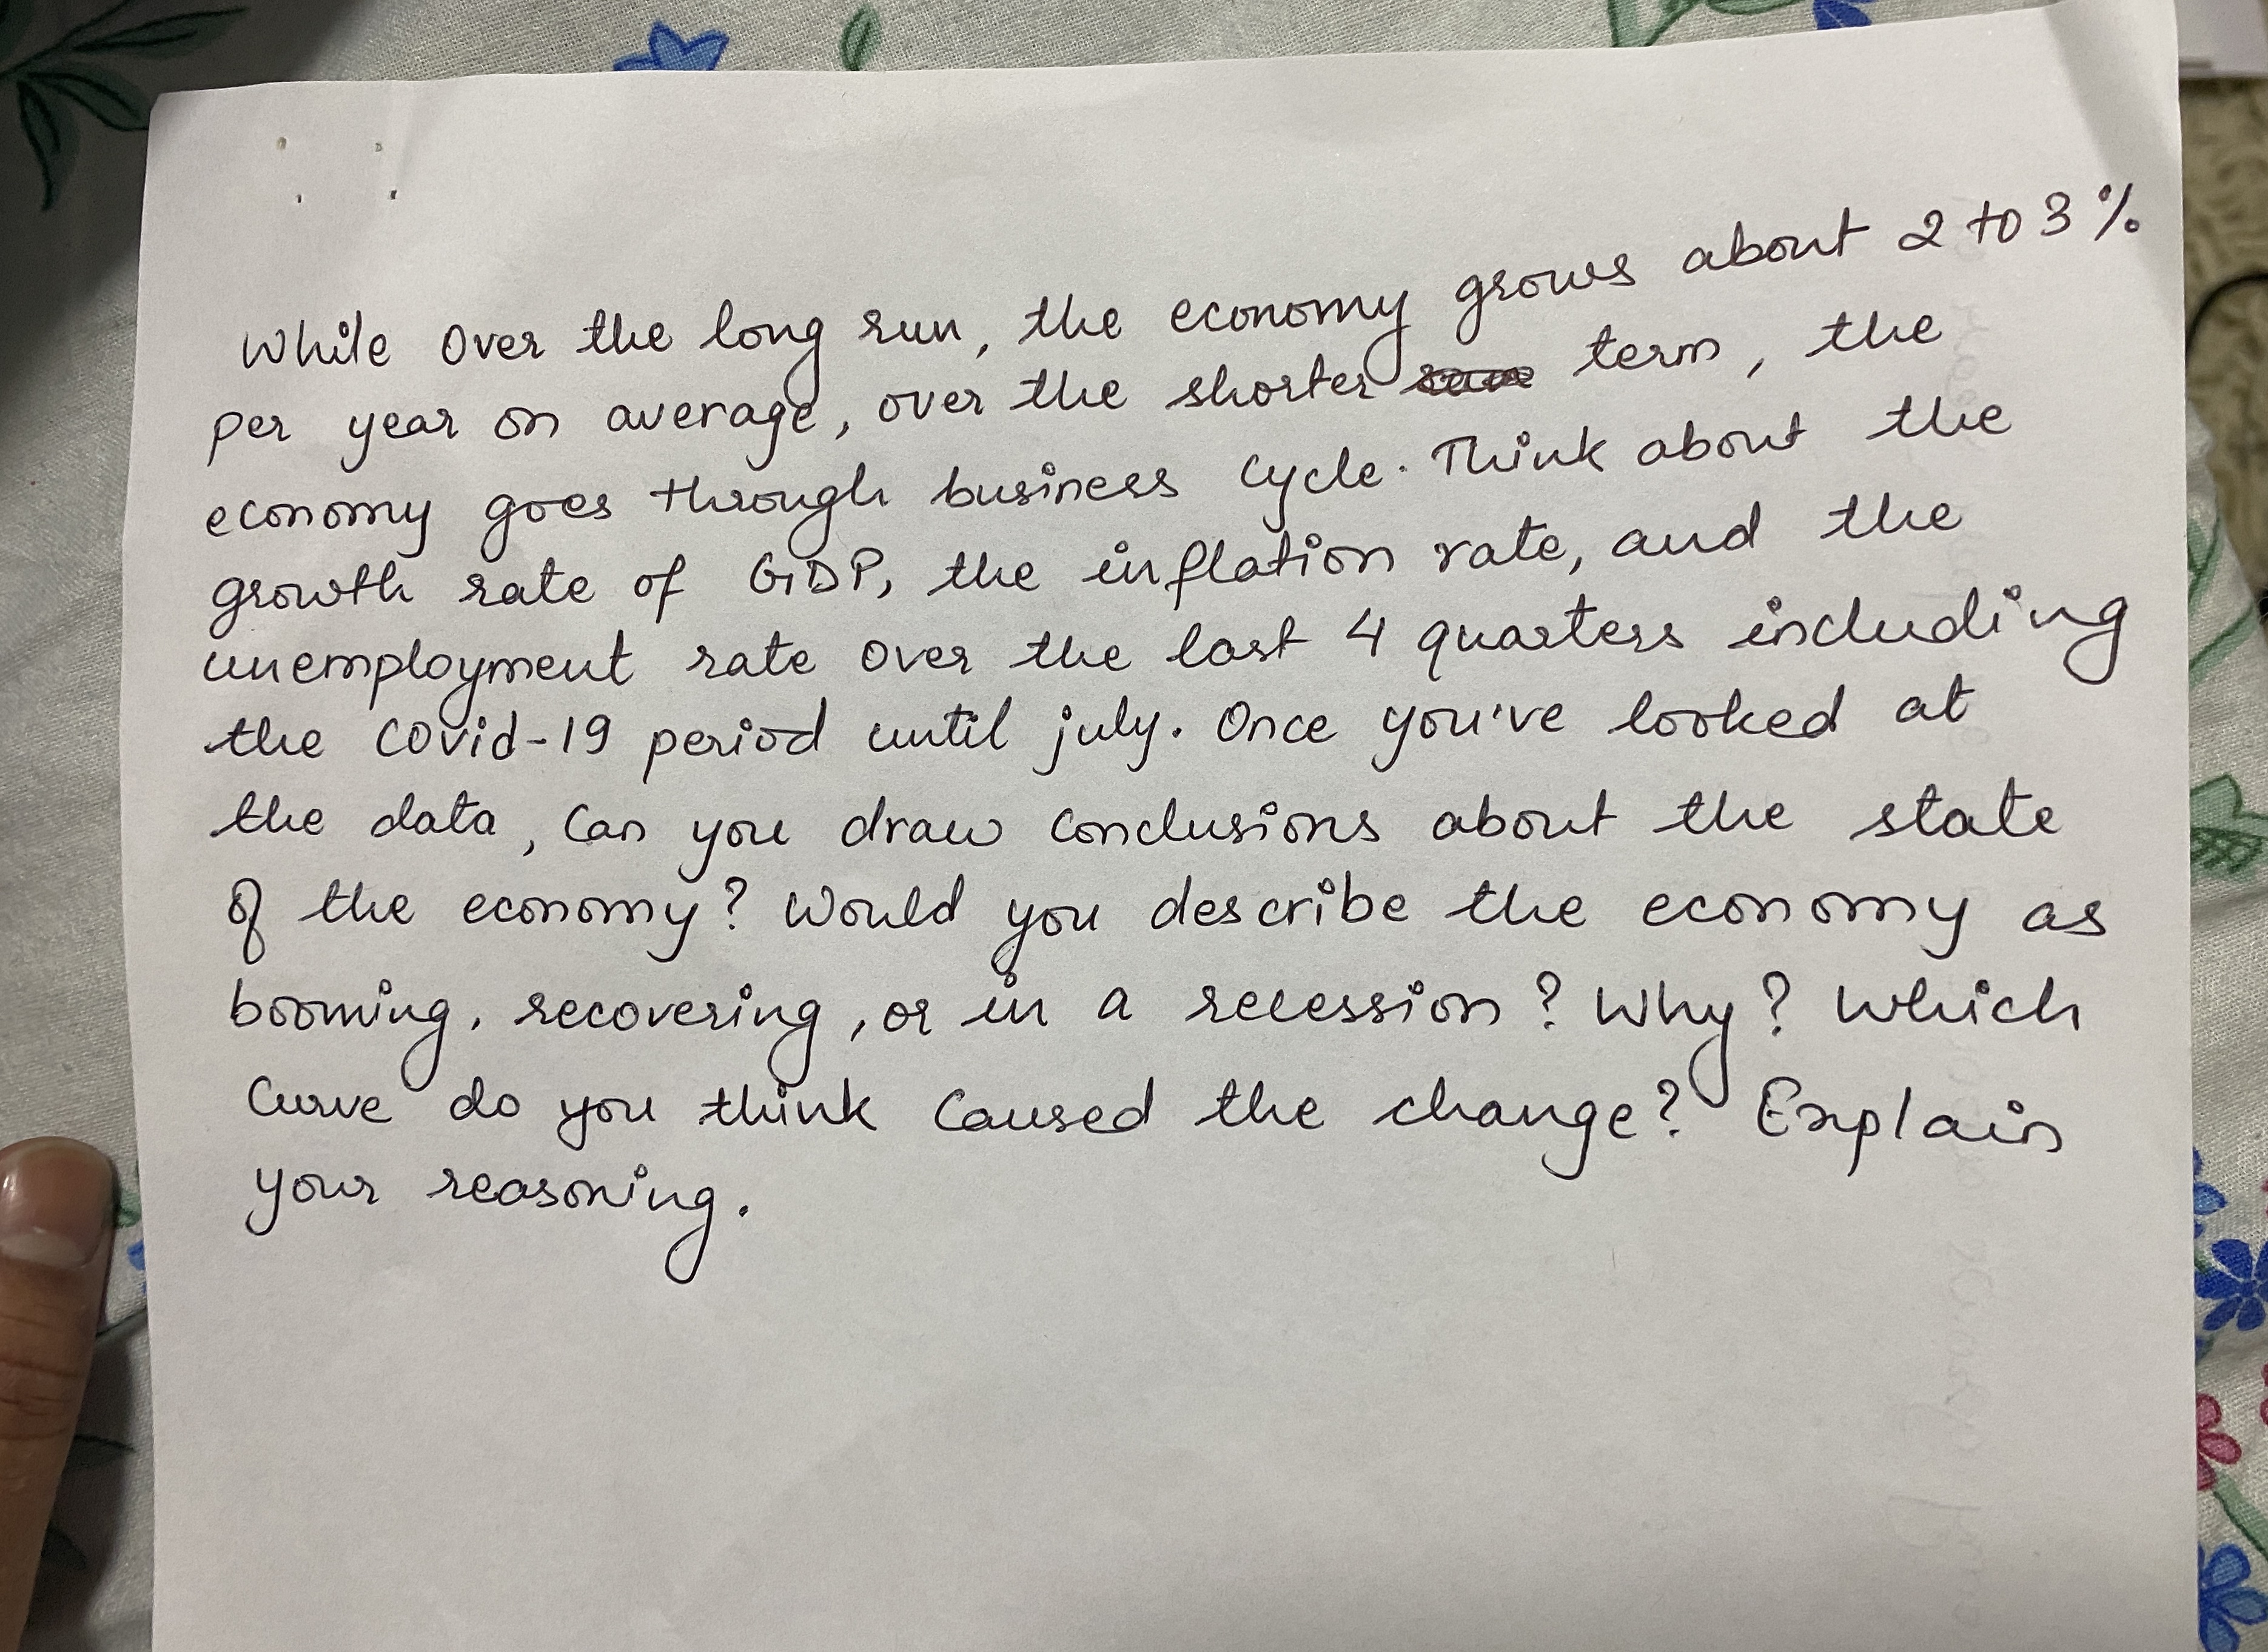 While over the long run, the economy grows about 2 to 3%
per year on average, over the shorter term, the
economy goes through business cycle. Think about the
growth rate of GDP, the inflation rate, and the
unemployment rate over the last 4 quarters including
the covid-19 period until july. Once you've looked at
the data, can you draw conclusions about the state
of the economy? Would you describe the economy as
booming, recovering, or in a recession? Why? Which
curve do you think caused the change? Explain
your reasoning.